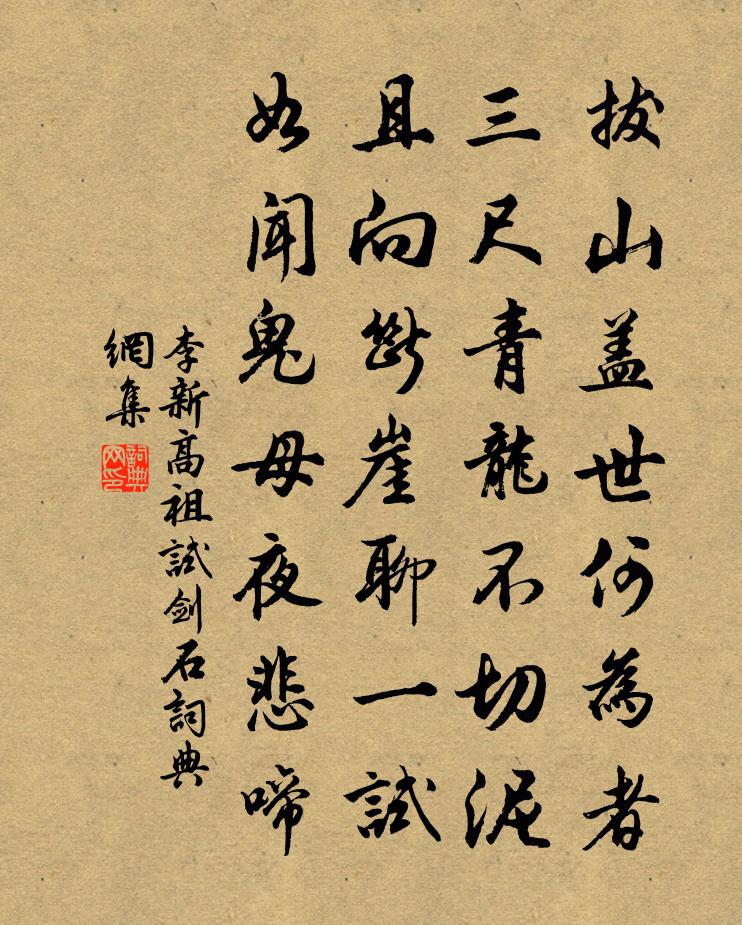 拔山盖世何為者
三尺青龍不切泥
且向斷崖聊一試
如聞鬼母夜悲啼
李新高祖試劍石詞典
網集
詞典
网印